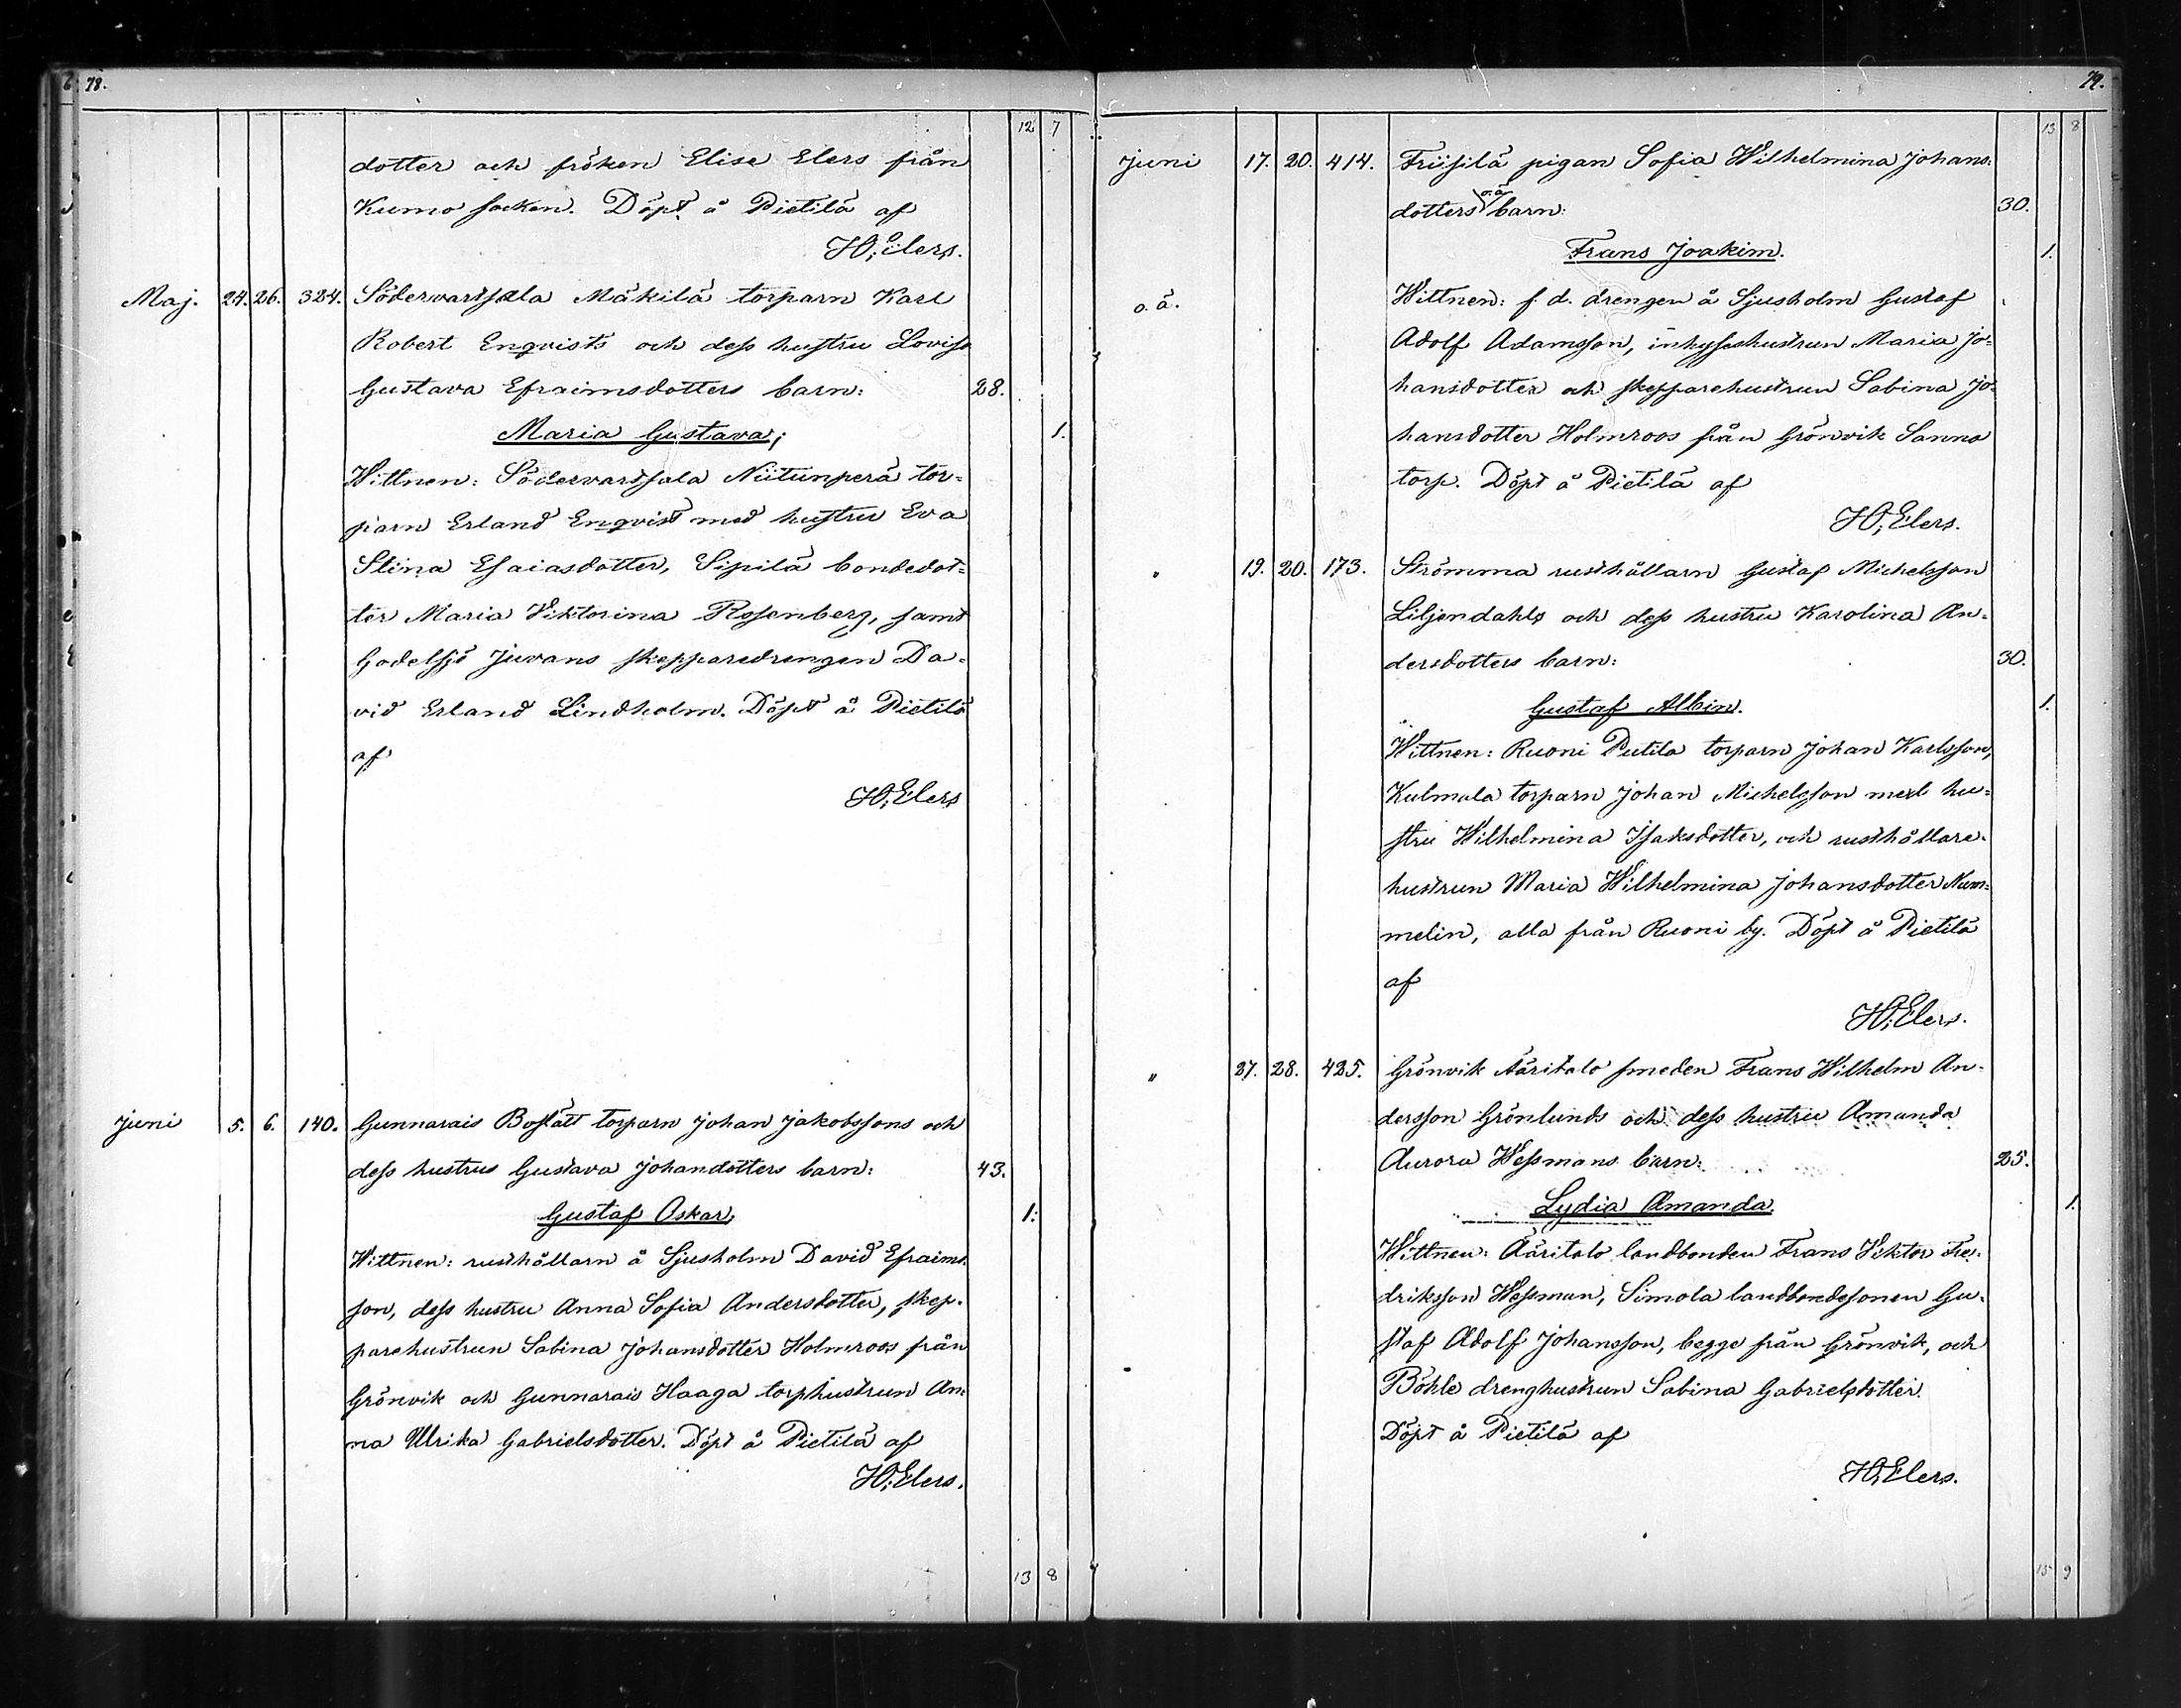 78.
12 7
dotter och fröken Elise Elers från
Kumo socken. Döpt å Pietilä af
H. Elers.
Maj. 24. 26. 324. Södervartsala Mäkilä torparn Karl
Robert Enqvists och dess hustru Lovisa
Gustava Efraimsdotters barn: 28.
Maria Gustava; 1.
Wittnen: Södervartsala Niitunperä tor=
parn Erland Enqvist med hustru Eva
Stina Esaiasdotter, Sipilä bondedot=
ter Maria Viktorina Rosenberg, samt
Godelsjö Juvans skepparedrengen Da=
vid Erland Lindholm. Döpt å Pietilä
af
H. Elers
Juni 5. 6. 140. Gunnarais Bostätt torparn Johan Jakobssons och
dess hustrus Gustava Johandotters barn: 43.
Gustaf Oskar, 1.
Wittnen: rusthållarn å Sjusholm David Efraims=
son, dess hustru Anna Sofia Andersdotter, skep=
parehustrun Sabina Johansdotter Holmroos från
Grönvik och Gunnarais Haaga torphustrun An=
na Ulrika Gabrielsdotter. Döpt å Pietilä af
H. Elers.
13 8
79.
13 8
Juni 17. 20. 414. Friisilä pigan Sofia Wilhelmina Johans=
dotters o.ä. barn: 30.
Frans Joakim. 1.
o.ä. Wittnen: f. d. drengen å Sjusholm Gustaf
Adolf Adamsson, inhyseshustrun Maria Jo=
hansdotter och skepparehustrun Sabina Jo=
hansdotter Holmroos från Grönvik Sanno
torp. Döpt å Pietilä af
H. Elers.
" 19. 20. 173. Strömma rusthållarn Gustaf Michelsson
Liljendahls och dess hustru Karolina An=
dersdotters barn: 30.
Gustaf Albin. 1.
Wittnen: Ruoni Putila torparn Johan Karlsson,
Kulmala torparn Johan Michelsson med hu=
stru Wilhelmina Isaksdotter, och rusthållare=
hustrun Maria Wilhelmina Johansdotter Num=
melin, alla från Ruoni by. Döpt å Pietilä
af
H. Elers.
" 27. 28. 425. Grönvik Ääritalo smeden Frans Wilhelm An=
dersson Grönlunds och dess hustru Amanda
Aurora Wessmans barn: 25.
Lydia Amanda 1.
Wittnen: Ääritalo landbonden Frans Viktor Fre=
driksson Wessman, Simola landbondesonen Gu=
staf Adolf Johansson, begge från Grönvik, och
Böhle drenghustrun Sabina Gabrielsdotter.
Döpt å Pietilä af
H. Elers.
15 9